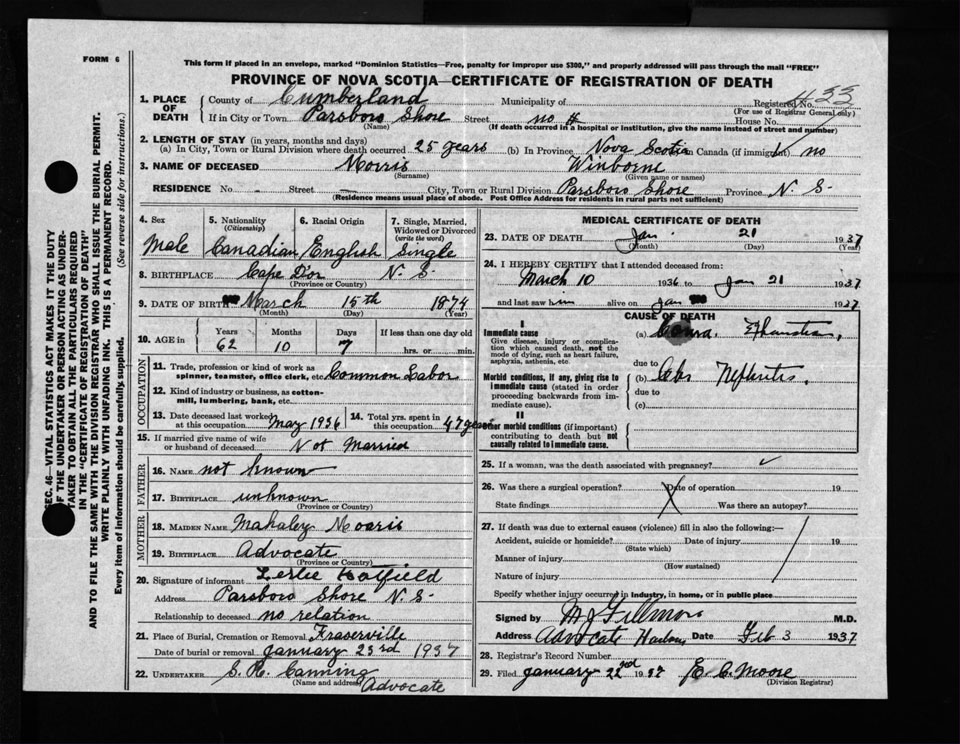 FORM 6
This form if placed in an envelope, marked "Dominion Statistics—Free, penalty for improper use $300," and properly addressed will pass through the mail "FREE"
PROVINCE OF NOVA SCOTIA—CERTIFICATE OF REGISTRATION OF DEATH
SEC. 46—VITAL STATISTICS ACT MAKES IT THE DUTY
OF THE UNDERTAKER OR PERSON ACTING AS UNDER-
TAKER TO OBTAIN ALL THE PARTICULARS REQUIRED
IN THE "CERTIFICATE OF REGISTRATION OF DEATH"
AND TO FILE THE SAME WITH THE DIVISION REGISTRAR WHO SHALL ISSUE THE BURIAL PERMIT.
WRITE PLAINLY WITH UNFADING INK. THIS IS A PERMANENT RECORD.
Every item of information should be carefully supplied. (See reverse side for instructions.)
1. PLACE OF DEATH County of Cumberland Municipality of Registered No. 433
(For use of Registrar General only)
If in City or Town Parsboro Shore Street no # House No.
(Name) (If death occurred in a hospital or institution, give the name instead of street and number)
2. LENGTH OF STAY (in years, months and days)
(a) In City, Town or Rural Division where death occurred 25 years (b) In Province Nova Scotia in Canada (if immigrant) no
3. NAME OF DECEASED Morris Winborne
(Surname) (Given name or names)
RESIDENCE No. – Street — City, Town or Rural Division Parsboro Shore Province N. S.
(Residence means usual place of abode. Post Office Address for residents in rural parts not sufficient)
4. Sex Male
5. Nationality (Citizenship) Canadian
6. Racial Origin English
7. Single, Married, Widowed or Divorced (write the word) Single
8. BIRTHPLACE Cape D'or N. S.
(Province or Country)
9. DATE OF BIRTH March 15th 1874
(Month) (Day) (Year)
10. AGE in Years 62 Months 10 Days 7 If less than one day old hrs. or min.
OCCUPATION
11. Trade, profession or kind of work as spinner, teamster, office clerk, etc. Common Labor
12. Kind of industry or business, as cotton-mill, lumbering, bank, etc.
13. Date deceased last worked at this occupation May 1936
14. Total yrs. spent in this occupation 47 years
15. If married give name of wife or husband of deceased Not Married
FATHER
16. NAME not known
17. BIRTHPLACE unknown
(Province or Country)
MOTHER
18. MAIDEN NAME Mahaley Morris
19. BIRTHPLACE Advocate
(Province or Country)
20. Signature of informant Leslie Hatfield
Address Parsboro Shore N. S.
Relationship to deceased no relation
21. Place of Burial, Cremation or Removal Fraserville
Date of burial or removal January 23rd 1937
22. UNDERTAKER S. R. Canning
(Name and address) Advocate
MEDICAL CERTIFICATE OF DEATH
23. DATE OF DEATH Jan. 21 1937
(Month) (Day) (Year)
24. I HEREBY CERTIFY that I attended deceased from:
March 10 1936 to Jan 21 1937
and last saw him alive on Jan 1937
CAUSE OF DEATH
I
Immediate cause
Give disease, injury or complication which caused death, not the mode of dying, such as heart failure, asphyxia, asthenia, etc.
(a)
due to
Morbid conditions, if any, giving rise to immediate cause (stated in order proceeding backwards from immediate cause).
(b) Nefhritis,
due to
(c)
II
Other morbid conditions (if important) contributing to death but not causally related to immediate cause.
25. If a woman, was the death associated with pregnancy?
26. Was there a surgical operation? Date of operation 19
State findings Was there an autopsy?
27. If death was due to external causes (violence) fill in also the following:—
Accident, suicide or homicide? Date of injury 19
(State which)
Manner of injury
(How sustained)
Nature of injury
Specify whether injury occurred in industry, in home, or in public place
Signed by M J Fillmore M.D.
Address Advocate Harbour Date Feb 3 1937
28. Registrar's Record Number
29. Filed January 22nd 1937 E. C. Moore
(Division Registrar)